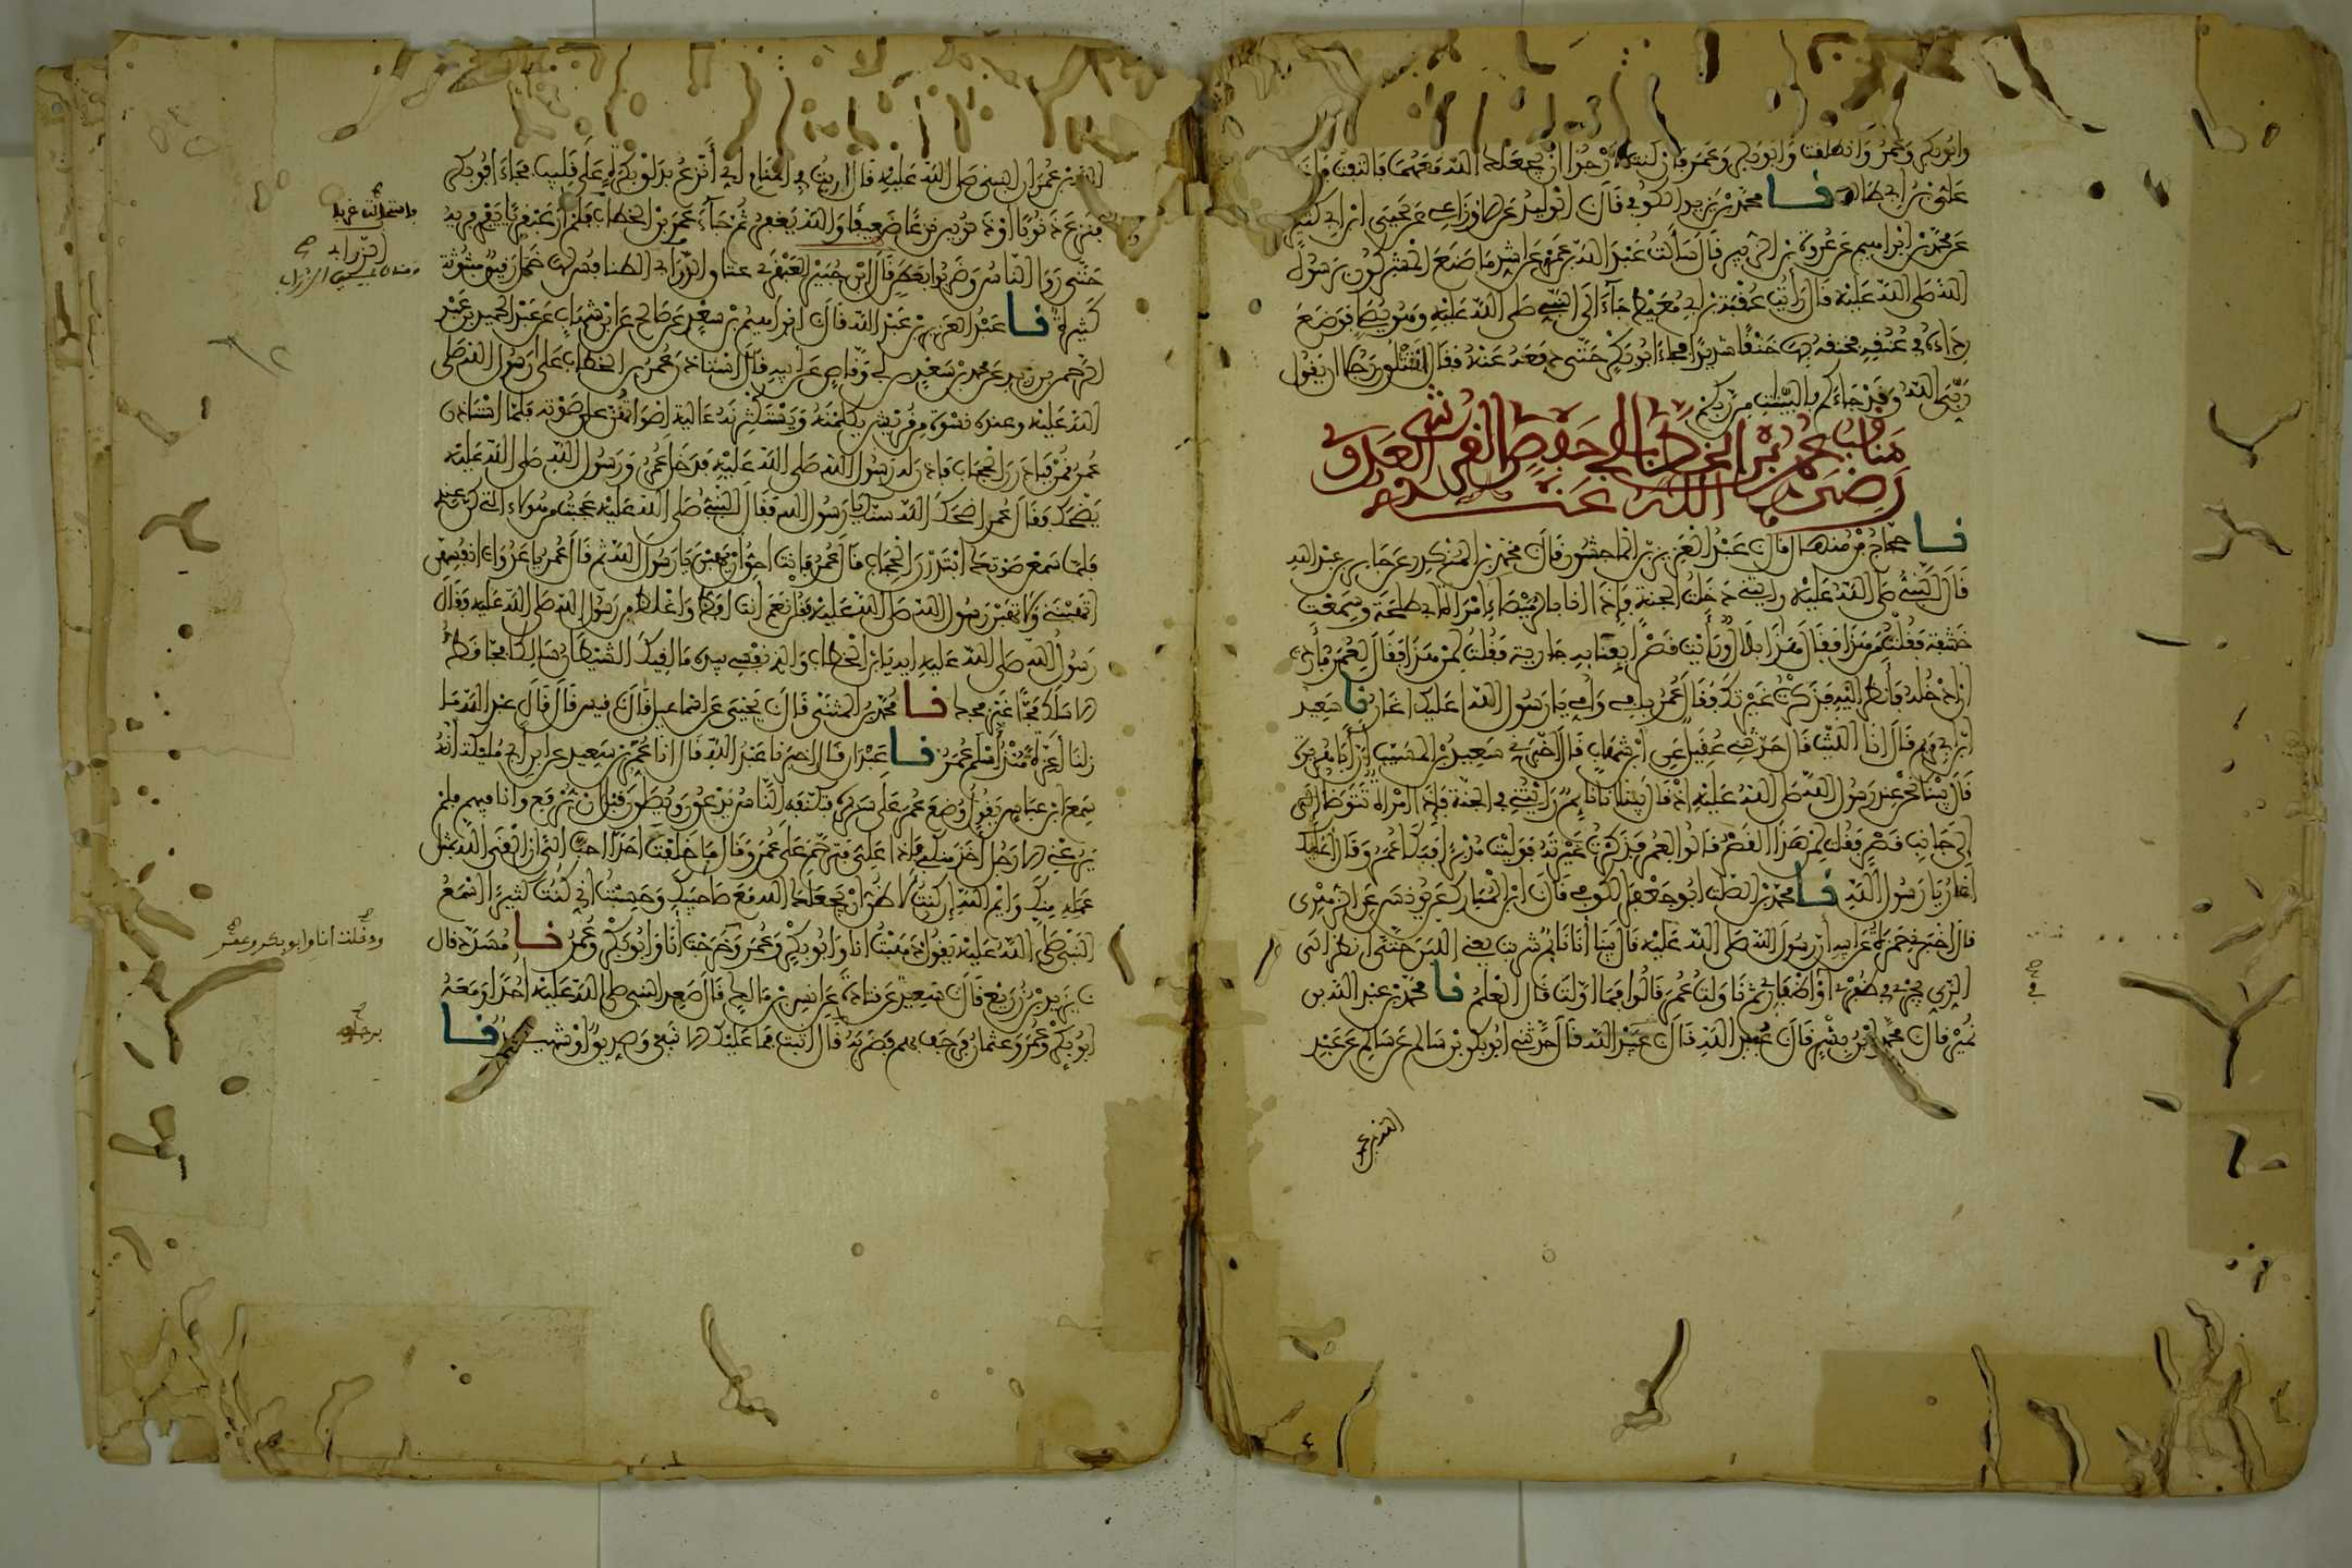 وابوبكر وعمر وانطلقت وابوبكر وعمر فان كنت لارجوا ان يجعلك الله معهما فالتفت فاذا
علي بن ابي طالب نا محمد بن يزيد الكوفي قال نا الوليد عن الاوزاعي عن يحيى ابن ابي كثير
عن محمد بن ابراهيم عن عروة بن الزبير قال سألت عبد الله بن عمرو عن اشد ما صنع المشركون برسول
الله صلى الله عليه قال رأيت عقبة بن ابي معيط جاء الى النبي صلى الله عليه وهو يصلي فوضع
رداءه في عنقه فخنقه بها خنقا شديدا فجاء ابوبكر حتى دفعه عنه فقال اتقتلون رجلا ان يقول
ربي الله وقد جاءكم بالبينات من ربكم
مناقب عمر بن الخطاب ابي حفص القرشي العدوي
رضي الله عنه
نا حجاج بن منهال قال نا عبد العزيز بن الماجشون قال نا محمد بن المنكدر عن جابر بن عبد الله
قال النبي صلى الله عليه رايتني دخلت الجنة فاذا انا بالرميصاء امراة ابي طلحة وسمعت
خشفة فقلت من هذا فقال هذا بلال ورأيت قصرا بفنايه جارية فقلت لمن هذا فقال لعمر فأردت
ان ادخله فأنظر اليه فذكرت غيرتك فقال عمر بابي وامي يا رسول الله اعليك اغار نا سعيد
ابن ابي مريم قال انا الليث قال حدثني عقيل عن ابن شهاب قال اخبرني سعيد بن المسيب ان أبا هريرة
قال بينا نحن عند رسول الله صلى الله عليه اذ قال بينا انا نائم رايتني في الجنة فاذا امراة تتوضأ الى
الى جانب قصر فقلت لمن هذا القصر قالوا لعمر فذكرت غيرته فوليت مدبرا فبكا عمر وقال اعليك
اغار يا رسول الله نا محمد بن الصلت ابو جعفر الكوفي قال نا ابن المبارك عن يونس عن الزهري
قال اخبرني حمزة عن ابيه ان رسول الله صلى الله عليه قال بينا انا نائم شربت يعني اللبن حتى انظر الى
الري يجري في ظفري او اظفاري ثم ناولت عمر قالوا فما اولت قال العلم نا محمد بن عبد الله بن
نمير قال نا محمد بن بشر قال نا عبيد الله قال حدثني ابوبكر بن سالم عن سالم عن عبد
الله بن عمر
الله بن عمر ان النبي صلى الله عليه قال اريت في المنام اني أنزع بدلو بكرة على قليب فجاء ابوبكر
فنزع ذنوبا او ذنوبين نزعا ضعيفا والله يغفر له ثم جاء عمر بن الخطاب فلم ار عبقريا يفري فريه
حتى روا الناس وضربوا بعطن قال ابن جبير العبقري عتاق الزرابي الطنافس لها خمل رقيق مبثوثة
كثيرة نا عبد العزيز بن عبد الله قال نا ابراهيم بن سعد عن صالح عن ابن شهاب عن عبد الحميد بن عبد
الرحمن بن زيد عن محمد بن سعد بن ابي وقاص عن ابيه قال استاذن عمر بن الخطاب على رسول الله صلى
الله عليه وعنده نسوة من قريش يكلمنه ويستكثرنه عالية اصواتهن على صوته فلما استاذن
عمر قمن فبادرن الحجاب فاذن له رسول الله صلى الله عليه فدخل عمر ورسول الله صلى الله عليه
يضحك فقال عمر اضحك الله سنك يا رسول الله فقال النبي صلى الله عليه عجبت من هؤلاء التي كن عندي
فلما سمعن صوتك ابتدرن الحجاب قال عمر فانت احق ان يهبن يا رسول الله ثم قال عمر يا عدوات انفسهن
اتهبنني ولا تهبن رسول الله صلى الله عليه فقلن نعم أنت افظ واغلظ من رسول الله صلى الله عليه وقال
رسول الله صلى الله عليه ايه يابن الخطاب والذي نفسي بيده ما لقيك الشيطان سالكا فجا قط
الا سلك فجا غير فجك نا محمد بن المثنى قال نا يحيى عن اسماعيل قال نا قيس قال قال عبد الله ما
زلنا أعزة منذ أسلم عمر نا عبدان قال اخبرنا عبد الله قال انا عمر بن سعيد عن ابن ابي مليكة أنه
سمع ابن عباس يقول وضع عمر على سريره فتكنفه الناس يدعون ويصلون قبل ان يرفع وانا فيهم فلم
يرعني الا رجل آخذ منكبي فاذا علي فترحم على عمر وقال ما خلفت احدا احب الي ان القى الله بمثل
عمله منك وايم الله ان كنت لاظن ان يجعلك الله مع صاحبيك وحسبت اني كنت كثيرا اسمع
النبي صلى الله عليه يقول ذهبت انا وابوبكر وعمر وخرجت انا وابوبكر وعمر نا مسدد قال
نا يزيد بن زريع قال نا سعيد عن قتادة عن انس بن مالك قال صعد النبي صلى الله عليه احدا ومعه
ابوبكر وعمر وعثمان فرجف بهم فضربه قال اثبت فما عليك الا نبي وصديق او شهيد نا
ودخلت انا وابو بكر وعمر
برجله